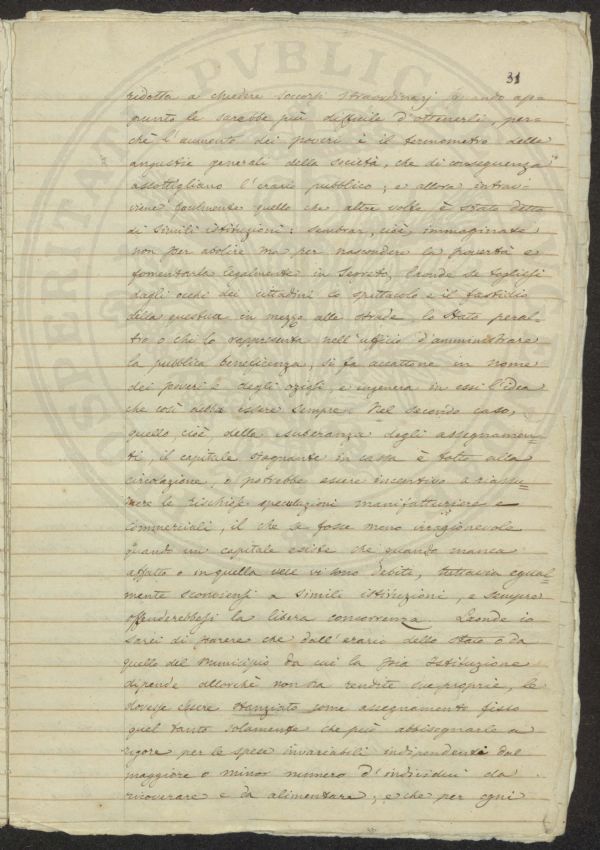 31
ridotta a chiedere soccorsi straordinarj quando ap-
punto le sarebbe più difficile d'ottenerli, per-
chè l'aumento dei poveri è il termometro delle
angustie generali della società, che di conseguenza
assottigliano l'erario pubblico; e allora intrav-
viene facilmente quello che altre volte è stato detto
di simili istituzioni: sembrar, cioè, immaginate
non per abolire ma per nascondere la povertà e
fomentarla legalmente in segreto, laonde se togliesi
dagli occhi dei cittadini lo spettacolo e il fastidio
della questua in mezzo alle strade, lo Stato peral-
tro o chi lo rappresenta nell'ufficio d'amministrare
la pubblica beneficenza, si fa accattone in nome
dei poveri e degli oziosi, e ingenera in essi l'idea
che così debba essere sempre. Nel secondo caso,
quello, cioè, della esuberanza degli assegnamen-
ti, il capitale stagnante in cassa è tolto alla
circolazione, o potrebbe essere incentivo a riassu-
mere le rischiose speculazioni manifatturiere e
commerciali, il che se fosse meno irragionevole
quando un capitale esiste che quando manca
affatto o in quella vece vi sono debiti, tuttavia egual-
mente sconviensi a simili istituzioni, e sempre
offenderebbesi la libera concorrenza. Laonde io
sarei di parere che dall'erario dello Stato o da
quello del Municipio da cui la pia Istituzione
dipende allorchè non ha rendite sue proprie, le
dovesse essere stanziato come assegnamento fisso
quel tanto solamente che può abbisognarle a
rigore per le spese invariabili indipendenti dal
maggiore o minor numero d'individui da
ricoverare e da alimentare; e che per ogni